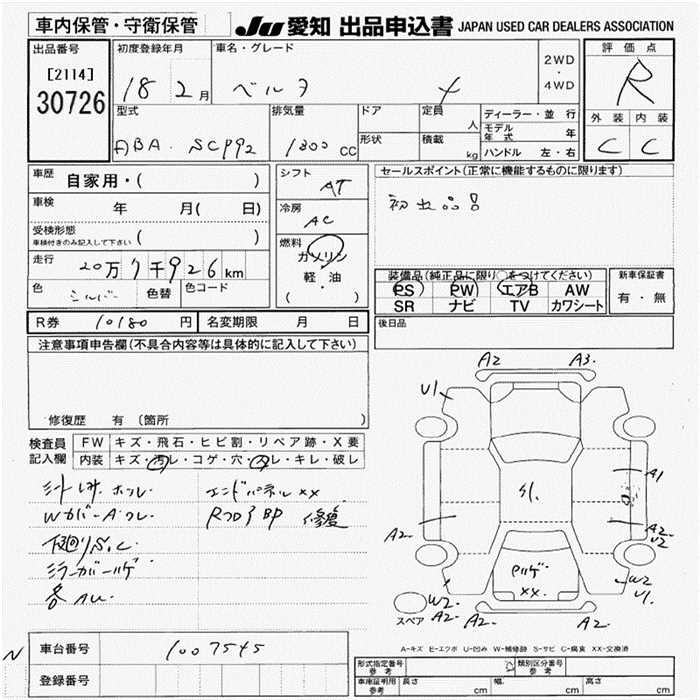 車内保管・守衛保管
JU 愛知 出品申込書 JAPAN USED CAR DEALERS ASSOCIATION
出品番号
[2114]
30726
初度登録年月
18 2月
車名・グレード
ベルタ X
2WD
・
4WD
評価点
R
外装 内装
C C
型式
ABA. SCP92
排気量
1300 CC
ドア
形状
定員
人
積載
kg
ディーラー・並行
モデル年式 年
ハンドル 左・右
車歴 自家用・( )
車検 年 月( 日)
受検形態 ( )
車検付きのみ記入して下さい
走行
20万7千926km
色 シルバー 色替 色コード
シフト
AT
冷房
AC
燃料
ガソリン
軽・油
( )
セールスポイント(正常に機能するものに限ります)
初出品!!
装備品(純正品に限り○をつけてください)
PS PW エアB AW
SR ナビ TV カワシート
新車保証書
有・無
R券 10180円 名変期限 月 日
後日品
注意事項申告欄(不具合内容等は具体的に記入して下さい)
修復歴 有 〔箇所 〕
検査員
記入欄
FW キズ・飛石・ヒビ割・リペア跡・X要
内装 キズ・汚レ・コゲ・穴・スレ・キレ・破レ
エンドパネルxx
Wカバー A.ワレ
下廻りS.C
各AU.
A2 A3.
U1
A1
A2
U2
A2-
ハゲ
xx.
W2-
A2-
W2
U1.
A2-
スペア
A-キズ E-エクボ U-凹み W-補修跡 S-サビ C-腐食 XX-交換済
N
車台番号 1007545
登録番号
形式指定番号
参考
類別区分番号
参考
車庫証明用
参考
長さ cm 幅 cm 高さ cm